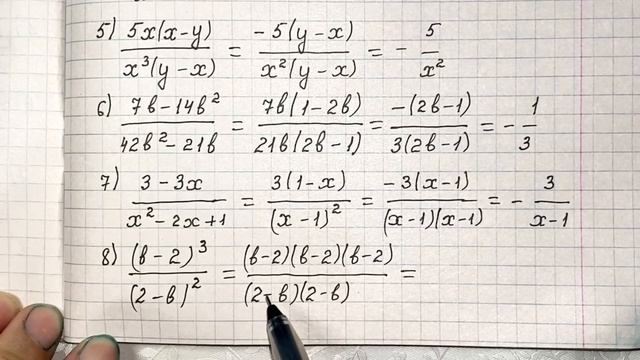 5) 5x(x-y)/x³(y-x) = -5(y-x)/x²(y-x) = - 5/x²
6) 7b-14b²/42b²-21b = 7b(1-2b)/21b(2b-1) = -(2b-1)/3(2b-1) = - 1/3
7) 3-3x/x²-2x+1 = 3(1-x)/(x-1)² = -3(x-1)/(x-1)(x-1) = - 3/x-1
8) (b-2)³/(2-b)² = (b-2)(b-2)(b-2)/(2-b)(2-b) =